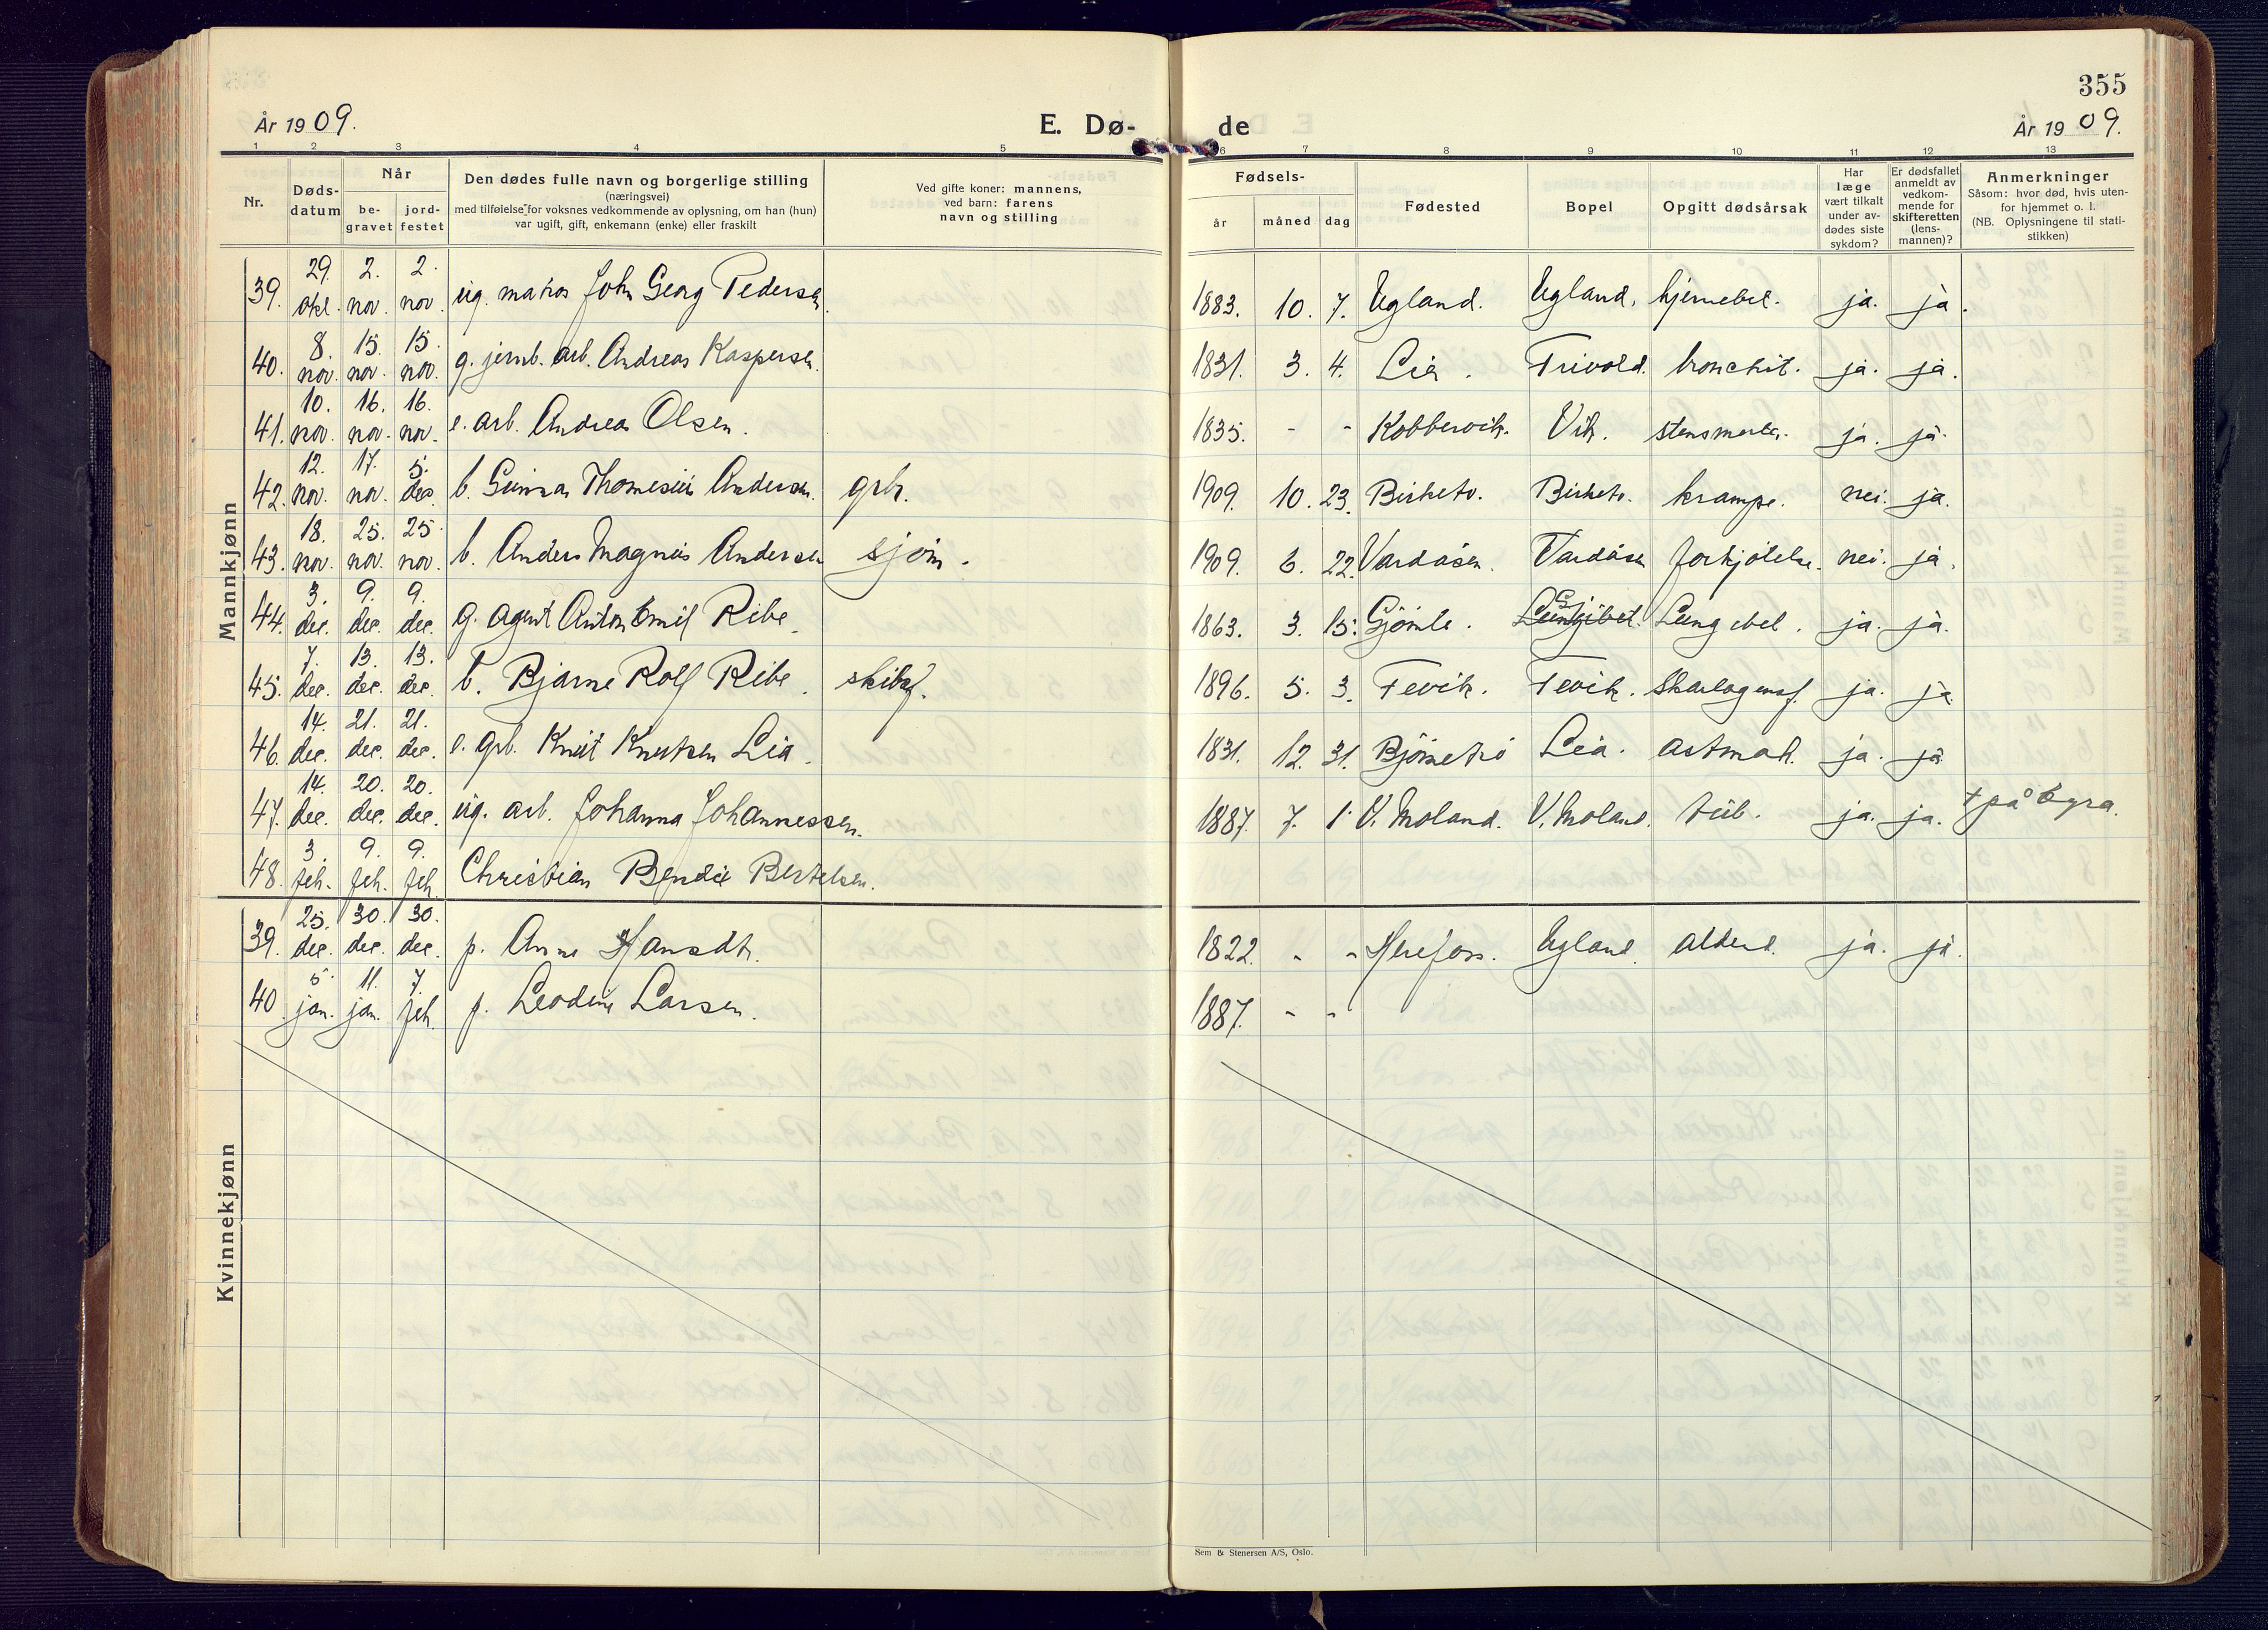 355
År 1909.
E. Dø-
de
År 1909.
1 2 3 4 5 6 7 8 9 10 11 12 13
Nr.
Døds-
datum
Når
be-
gravet
jord-
festet
Den dødes fulle navn og borgerlige stilling
(næringsvei)
med tilføielse for voksnes vedkommende av oplysning, om han (hun)
var ugift, gift, enkemann (enke) eller fraskilt
Ved gifte koner: mannens,
ved barn: farens
navn og stilling
Fødsels-
år måned dag
Fødested
Bopel
Opgitt dødsårsak
Har
læge
vært tilkalt
under av-
dødes siste
sykdom?
Er dødsfallet
anmeldt av
vedkom-
mende for
skifteretten
(lens-
mannen)?
Anmerkninger
Såsom: hvor død, hvis uten-
for hjemmet o. l.
(NB. Oplysningene til stati-
stikken)
Mannkjønn
39. 29. okt. 2. nov. 2. nov. ug. matros John Georg Pedersen. 1883. 10. 7. Ugland. Ugland. hjernebet. ja. ja.
40. 8. nov. 15. nov. 15. nov. g. jernb. arb. Andreas Kaspersen. 1831. 3. 4. Lia. Trivold. bronchit. ja. ja.
41. 10. nov. 16. nov. 16. nov. e. arb. Andreas Olsen. 1835. - - Kobbervik. Vik. stensmerter. ja. ja.
42. 12. nov. 17. nov. 5. dec. b. Gunnar Thomesius Andersen. grbr. 1909. 10. 23. Birketv. Birketv. krampe. nei. ja.
43. 18. nov. 25. nov. 25. nov. b. Anders Magnus Andersen sjøm. 1909. 6. 22. Vardåsen. Vardåsen forkjölelse. nei. ja.
44. 3. dec. 9. dec. 9. dec. g. agent Anton Emil Ribe. 1863. 3. 15. Gjömle. Lungebet. Lungebet. ja. ja.
45. 7. dec. 13. dec. 13. dec. b. Bjarne Rolf Ribe. skibsf. 1896. 5. 3. Fevik. Fevik. Skarlagensf. ja. ja.
46. 14. dec. 21. dec. 21. dec. e. grb. Knut Knutsen Lia. 1831. 12. 31. Björnetrö Lia. astmah. ja. ja
47. 14. dec. 20. dec. 20. dec. ug. arb. Johanna Johannessen. 1887. 7. 1. V. Moland. V. Moland. tub. ja. ja. † på Egra.
48. 3. feb. 9. feb. 9. feb. Christian Bendix Bertelsen.
Kvinnekjønn
39. 25. dec. 30. dec. 30. dec. p. Anne Hansdtr. 1822. - - Herefoss. Ugland. alderd. ja. ja.
40. 5. jan. 11. jan. 7. feb. p. Leodine Larsen. 1887. - -
Sem & Stenersen A/S, Oslo.